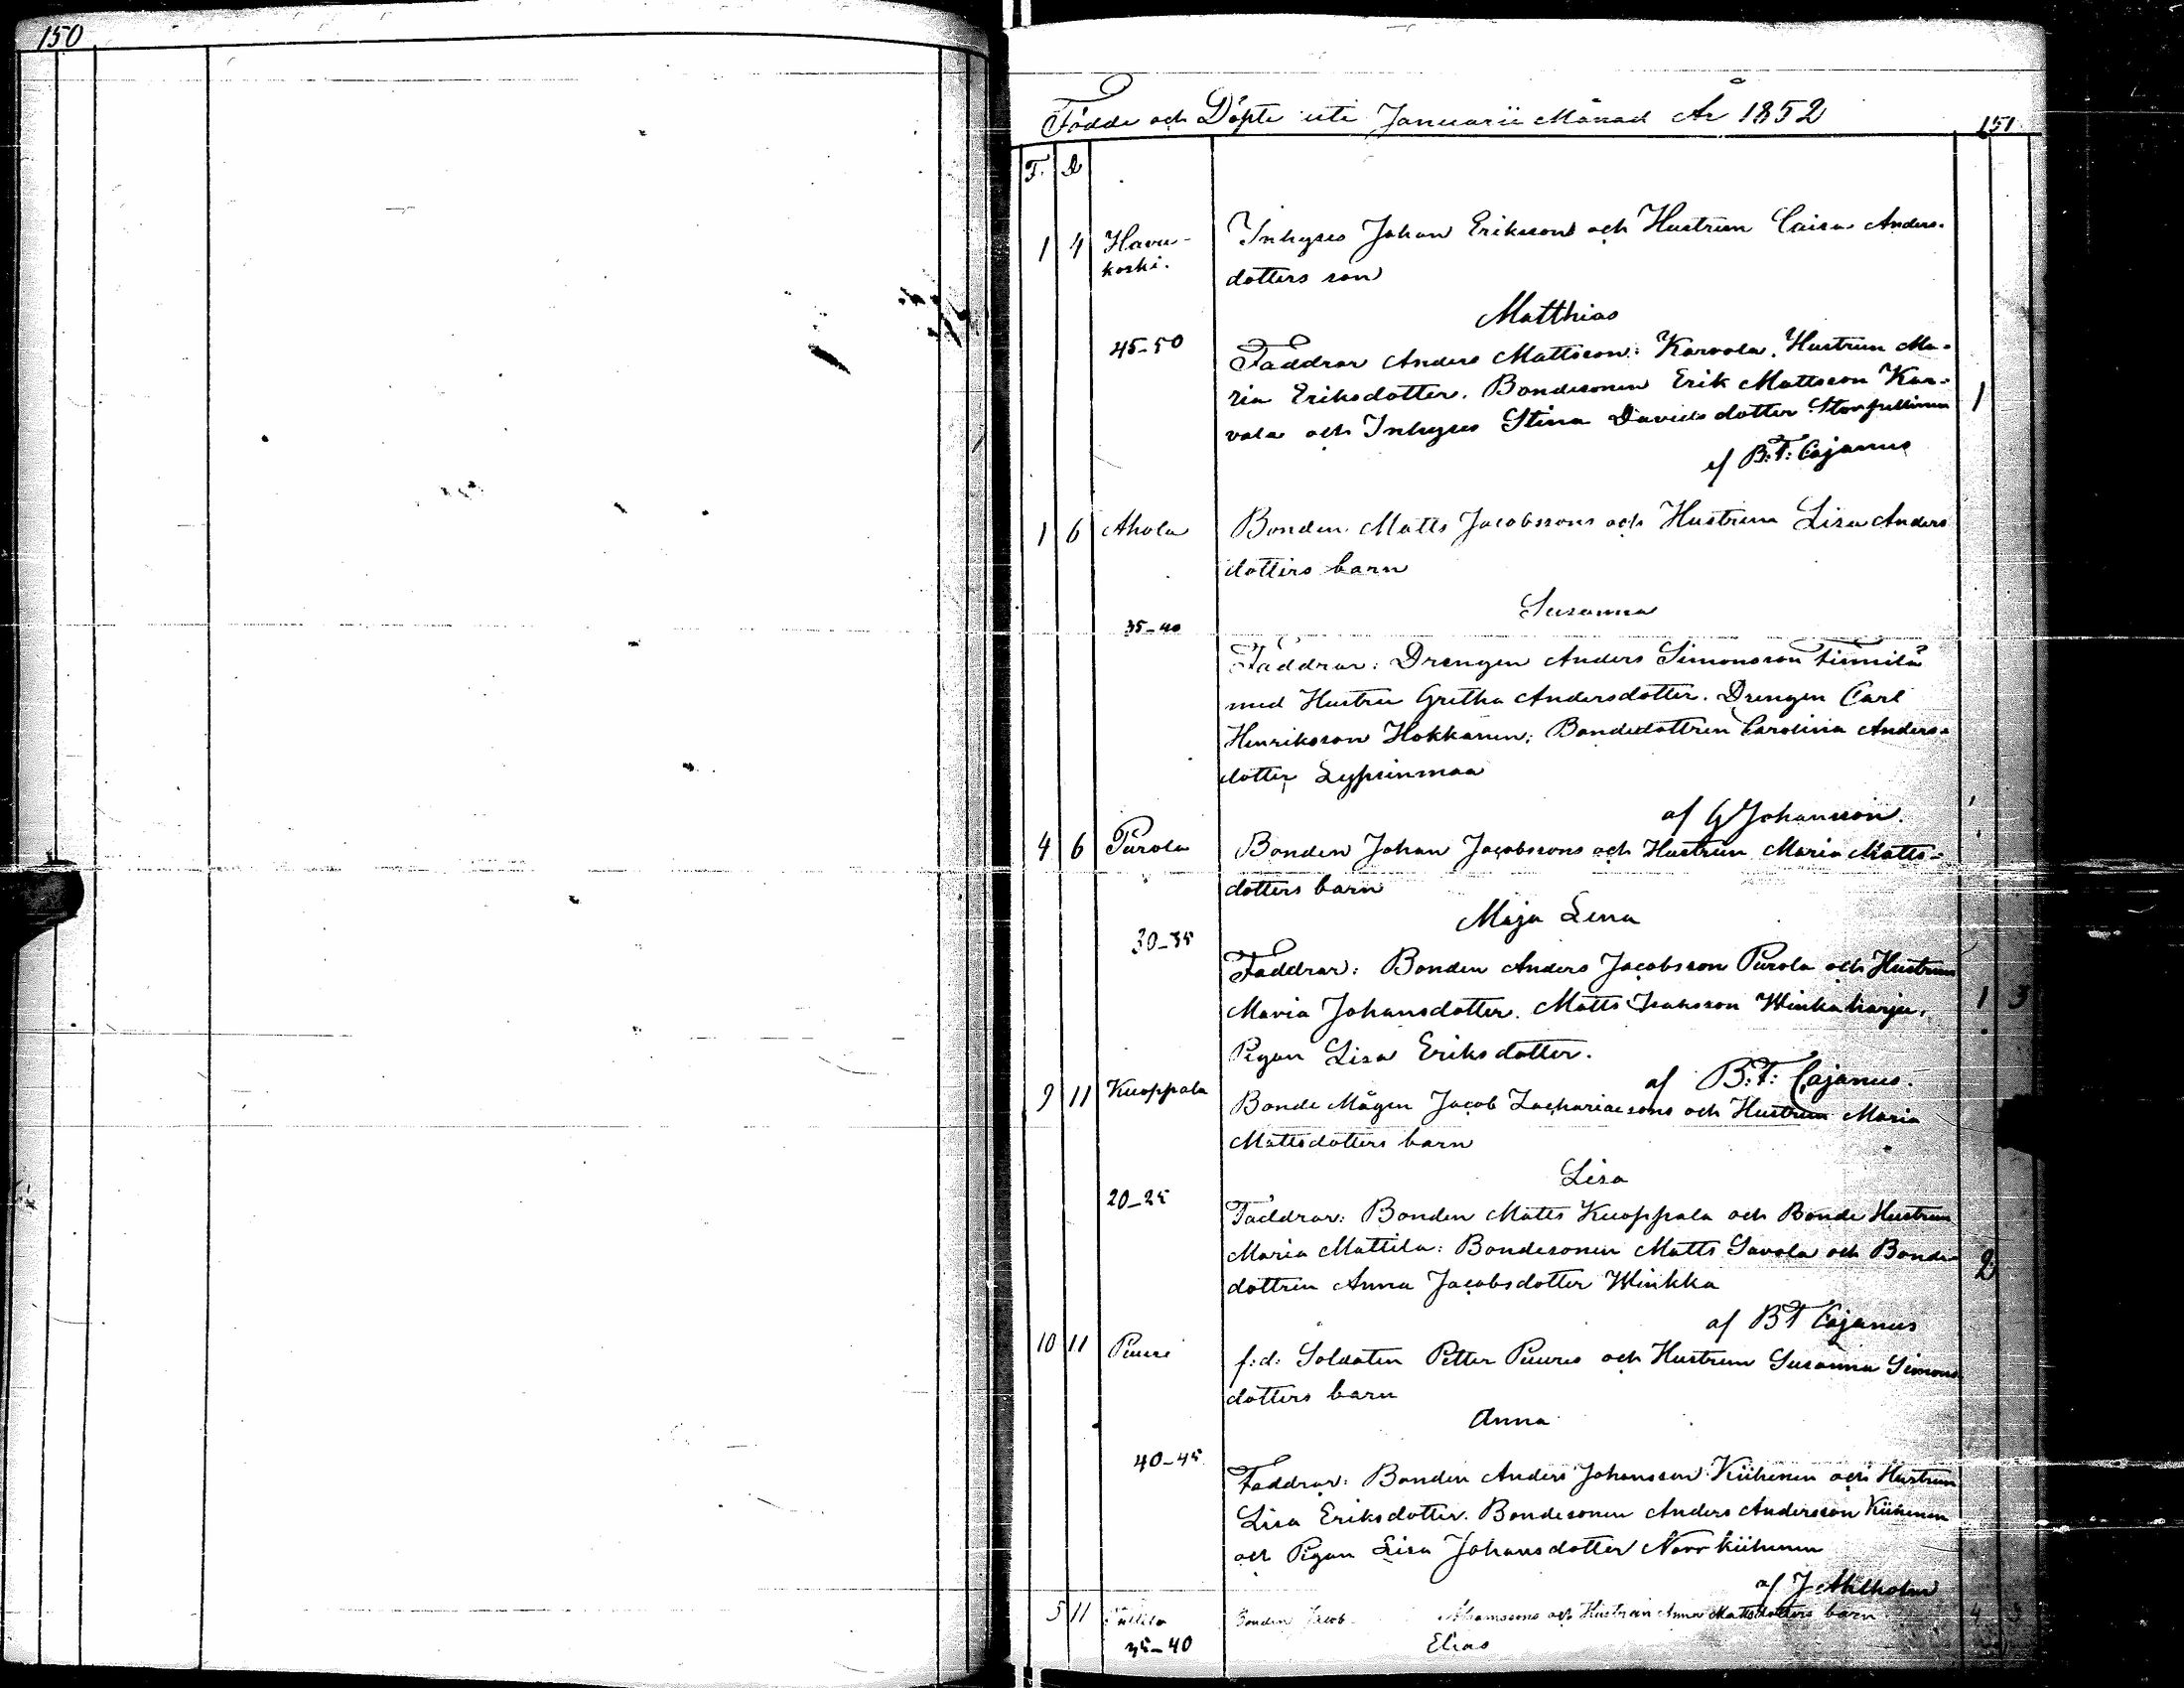 150
Födde och Döpte uti Januarii Månad År 1852
151
F. D
1 4 Havukoski. Inhyses Johan Eriksons och Hustrun Caisa Anders-
dotters son
Matthias
45-50
Faddrar Anders Mattsson Karvola. Hustrun Ma-
ria Eriksdotter. Bondesonen Erik Mattsson Kar-
vala och Inhyses Stina Davidsdotter
1
af B:F: Cajanus
1 6 Ahola Bonden Matts Jacobssons och Hustrun Lisa Anders
dotters barn
Susanna
35-40
Faddrar: Drengen Anders Simonsson Finnilä
med Hustru Gretha Andersdotter. Drengen Carl
Henriksson Hokkanen; Bondedottren Carolina Anders-
dotter Lypsinmaa
af G Johansson.
4 6 Purola Bonden Johan Jacobssons och Hustrun Maria Matts-
dotters barn
Maja Lena
30-35
Faddrar: Bonden Anders Jacobsson Purola och Hustrun
Maria Johansdotter. Matts Isaksson Winkaharju.
1 3
Pigan Lisa Eriksdotter.
af B:F: Cajanus.
9 11 Kuoppala Bonde Mågen Jacob Zachariaesons och Hustrun Maria
Mattsdotters barn
Lisa
20-25
Faddrar: Bonden Matts Kuoppala och Bonde Hustrun
Maria Mattila: Bondesonen Matts Savola och Bonde-
dottren Anna Jacobsdotter Winkka
2
af B F Cajanus
10 11 Puure f:d: Soldaten Petter Puures och Hustrun Susanna Simons
dotters barn
Anna
40-45
Faddrar: Bonden Anders Johansson Kiihenen och Hustrun
Lisa Eriksdotter. Bondesonen Anders Andersson Kiihenen
och Pigan Lisa Johansdotter Norr Kiihenen
af J Ahlholm
5 11 Bonden Jacob Abramssons och Hustrun Anna Mattsdotters barn
4 3
35-40 Elias